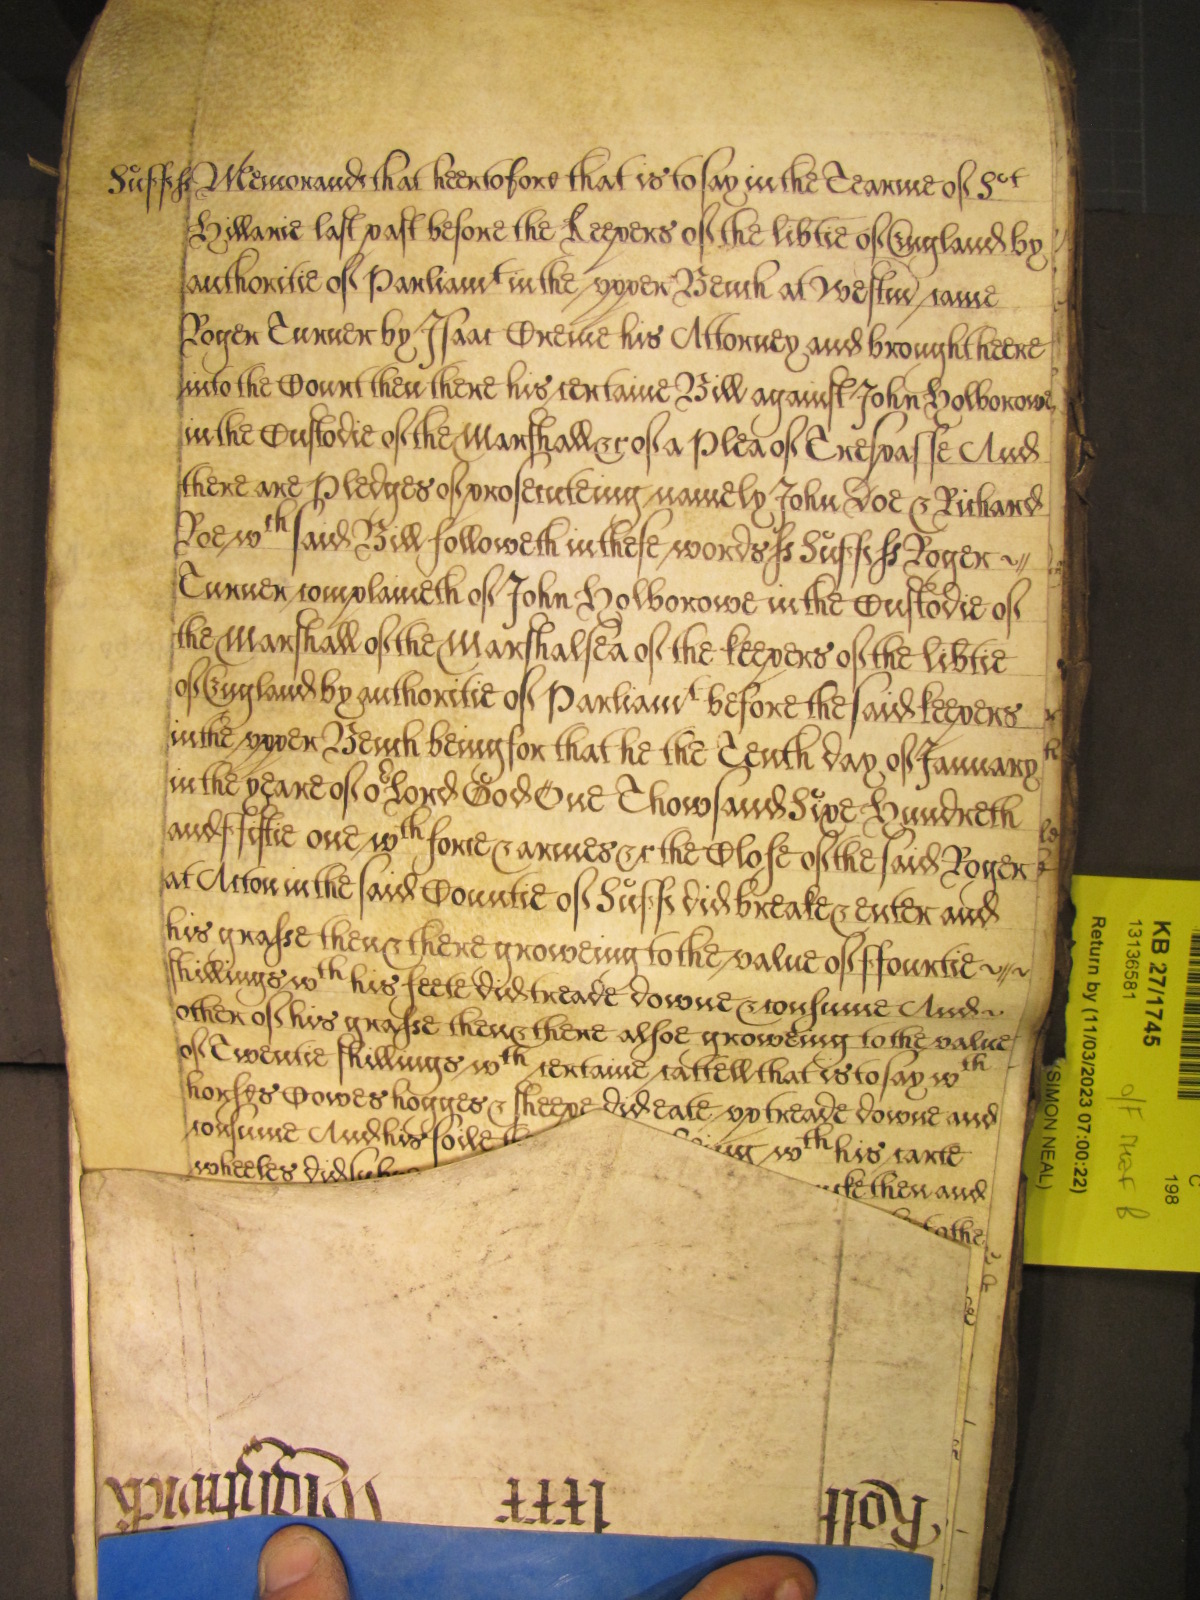 Suff ss Memorand that heertofore that is to say in the Tearme of Sct
Hillarie last past before the Keepers of the libtie of England by
authoritie of Parliamt in the upper Bench at Westm came
Roger Turner by Isaac Creme his Attorney and brought heere
into the Court then there his certaine Bill against John Holborowe
in the Custodie of the Marshall &c of a Plea of Trespasse And
there are Pledges of prosecuteing namely John Doe & Richard
Roe wth said Bill followeth in these words ss Suff ss Roger
Turner complaineth of John Holborowe in the Custodie of
the Marshall of the Marshalsea of the keepers of the libtie
of England by authoritie of Parliamt before the said keepers
in the upper Bench being for that he the Tenth day of January
in the yeare of or Lord God One Thowsand Sixe Hundreth
and ffiftie one wth force & armes &c the Close of the said Roger
at Acton in the said Countie of Suff did breake & enter and
his grasse then & there groweing to the value of ffourtie
shillings wth his feete did treade downe & consume And
other of his grasse then & there alsoe groweing to the value
of Twentie shillings wth certaine cattell that is to say wth
horses Cowes hogges & sheepe did eate up treade downe and
consume And his soile wth his carte
wheeles did then and
Roll
Wightwick
KB 27/1745
13136581
Return by (11/03/2023 07:00:22)
(SIMON NEAL)
C
198